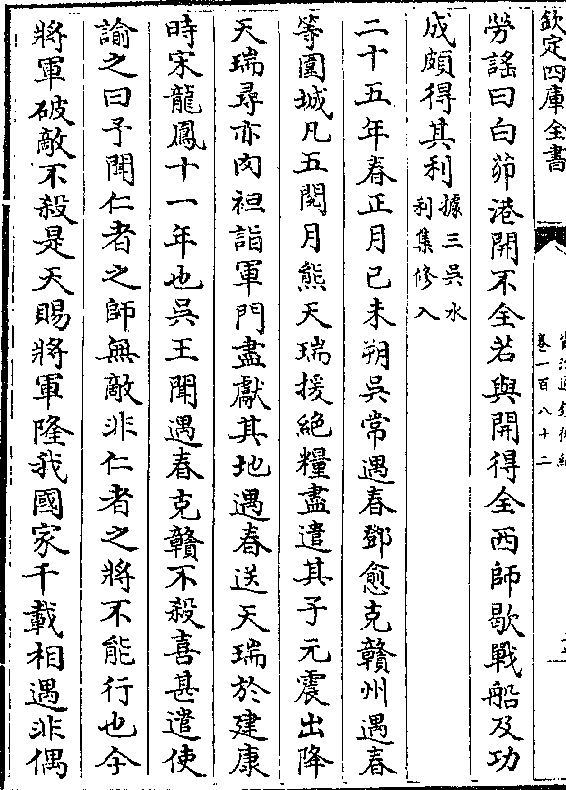 欽定四庫全書
卷一百八十二
勞謡曰白茆港開不全若與開得全西師歇戰船及功
成頗得其利據三吳水利集修入
二十五年春正月己未朔吳常遇春鄧愈克贛州遇春
等圍城凡五閱月熊天瑞援絶糧盡遣其子元震出降
天瑞尋亦肉袒詣軍門盡獻其地遇春送天瑞於建康
時宋龍鳳十一年也吳王聞遇春克贛不殺喜甚遣使
諭之曰予聞仁者之師無敵非仁者之將不能行也今
將軍破敵不殺是天賜將軍隆我國家千載相遇非偶